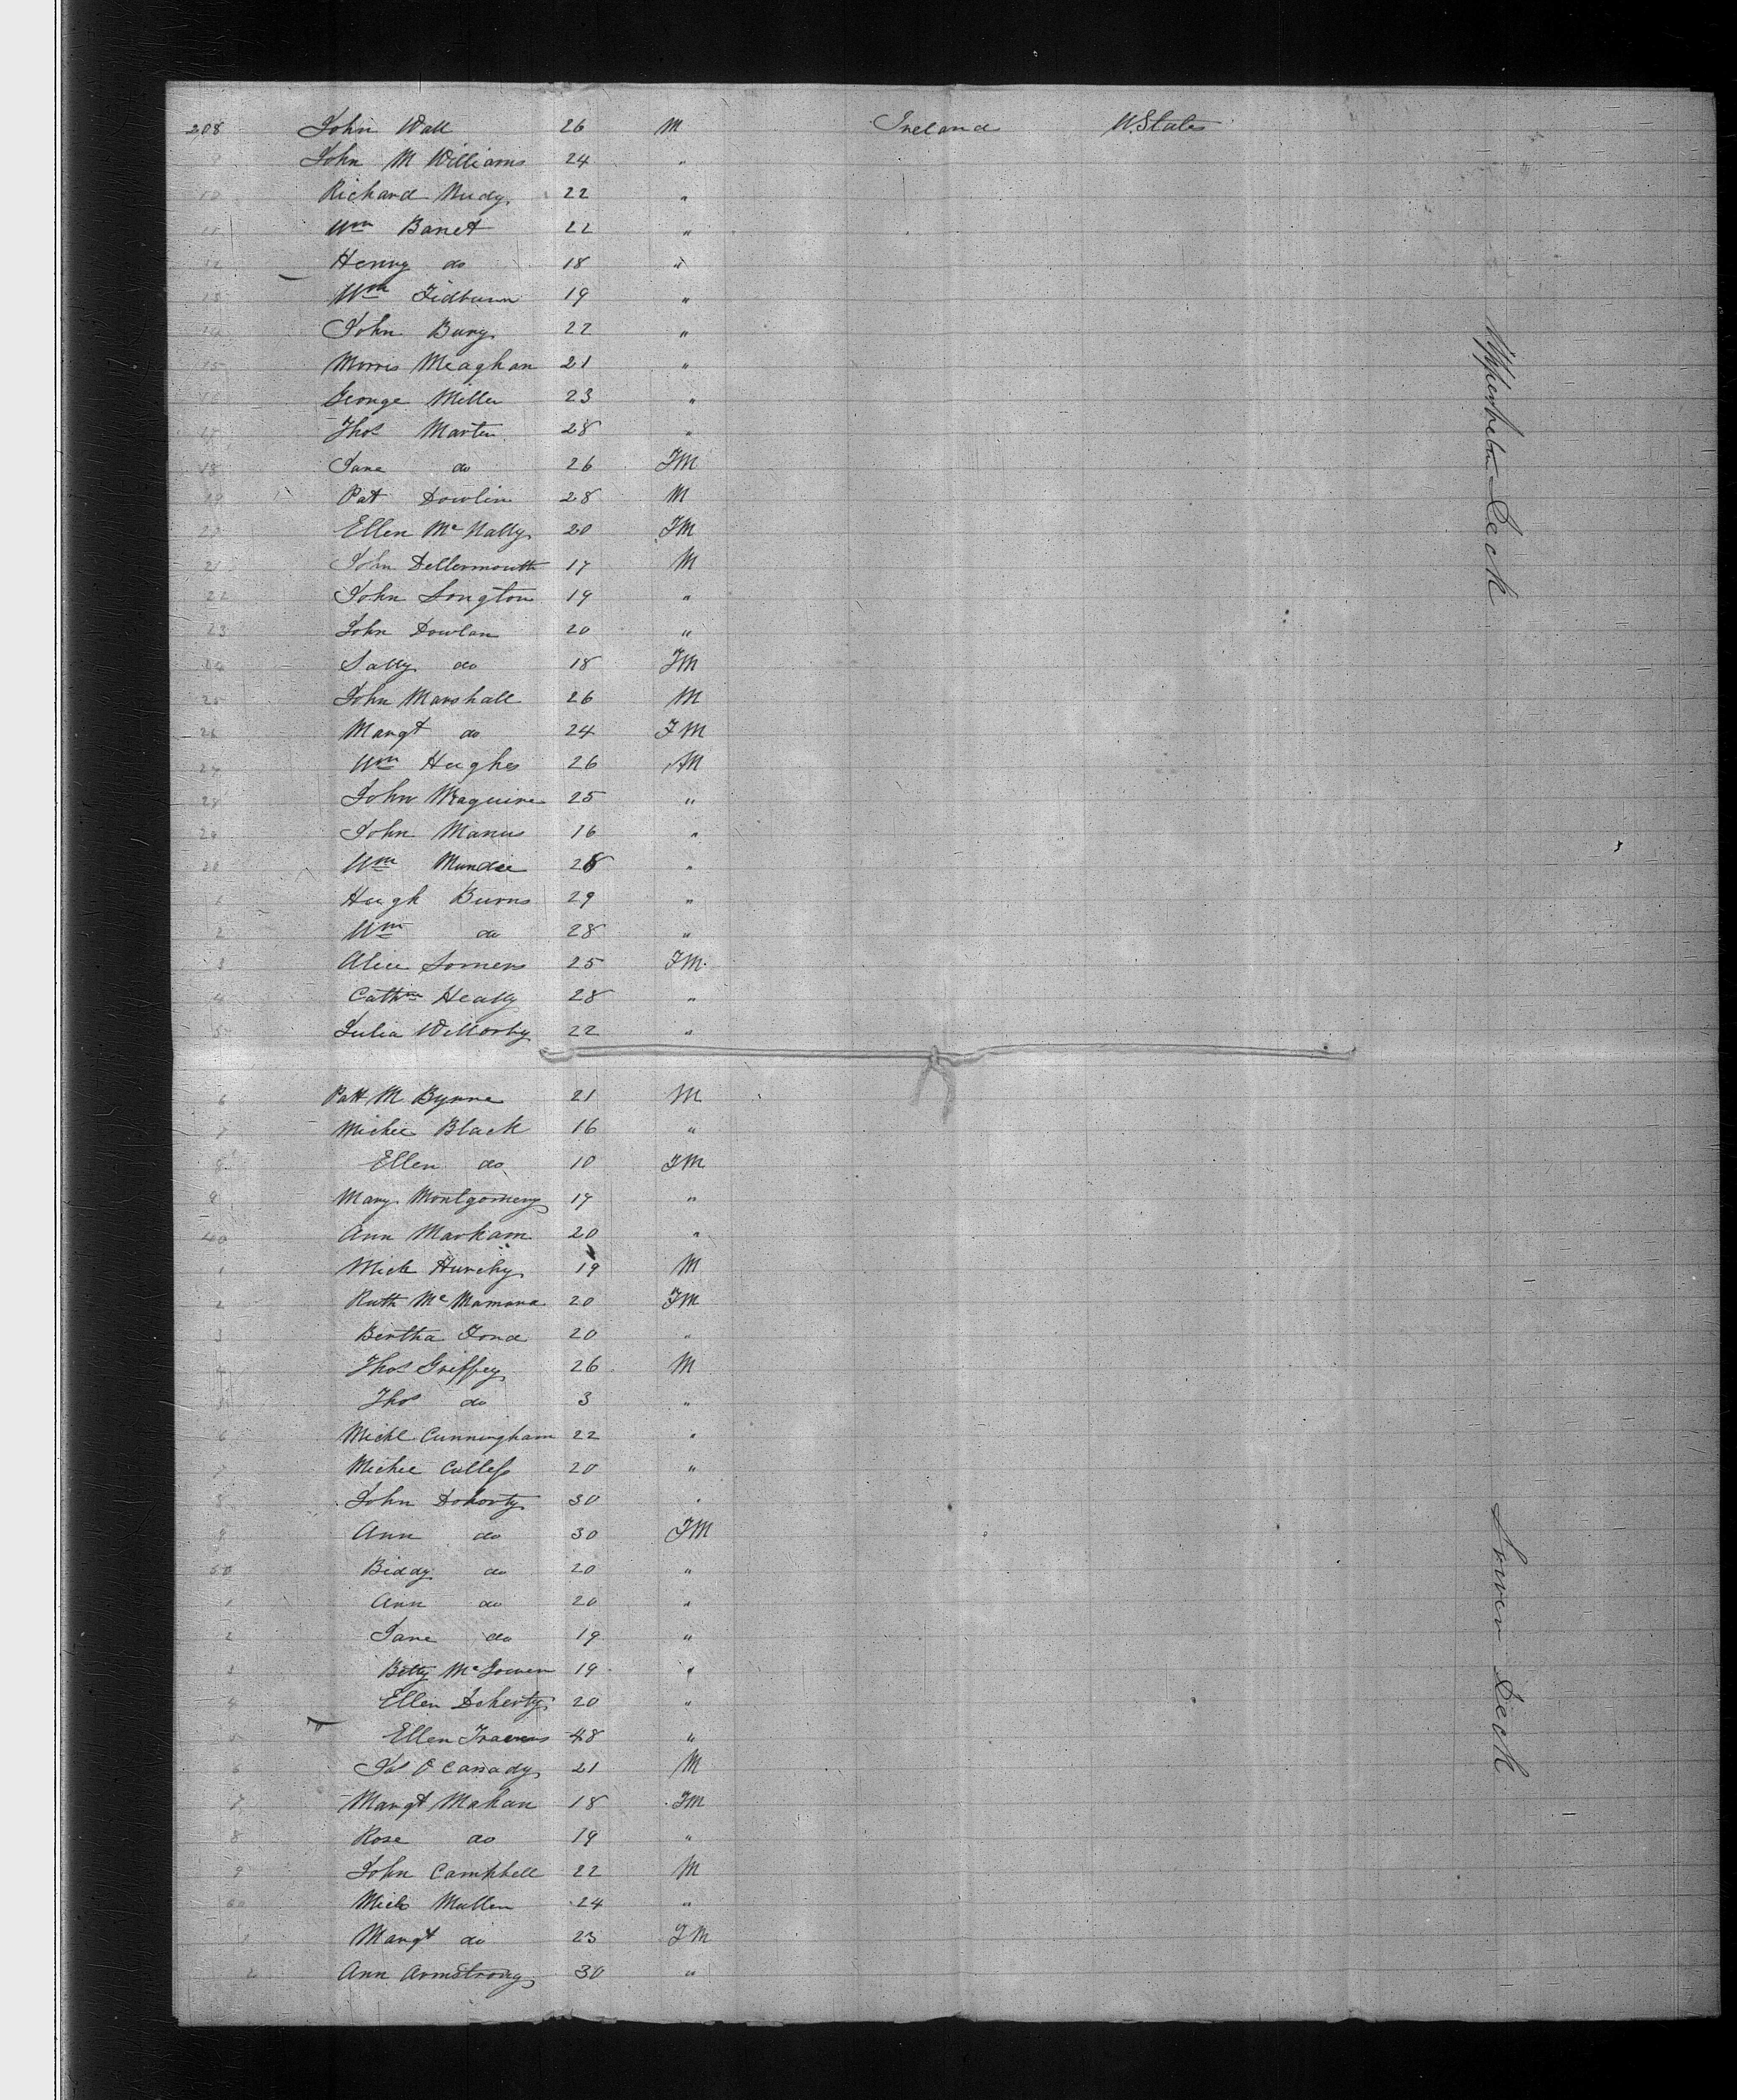 208 John Wall 26 M Ireland U. States
9 John M Williams 24 "
10 Richard Nudy 22 "
11 Wm Baret 22 "
12 Henry do 18 "
13 Wm Tidburn 19 "
14 John Bury 22 "
15 Morris Meaghan 21 "
16 George Miller 23 "
17 Thos Marten 28 "
18 Jane do 26 FM
19 Pat Dowlin 28 M
20 Ellen Mc Nally 20 FM
21 John Dellermouth 17 M
22 John Longton 19 "
23 John Dowlan 20 "
24 Sally do 18 FM
25 John Marshall 26 M
26 Margt do 24 FM
27 Wm Hughes 26 M
28 John Maguire 25 "
29 John Manus 16 "
30 Wm Mundie 28 "
1 Hugh Burns 29 "
2 Wm do 28 "
3 Alice Somers 25 FM
4 Cathn Heally 28 "
5 Julia Willorby 22 "
Upper between Deck
6 Patt M Byrne 21 M
7 Michl Black 16 "
8 Ellen do 10 FM
9 Mary Montgomery 17 "
40 Ann Markam 20 "
1 Michl 19 M
2 Ruth Mc Mamara 20 FM
3 Bertha Ford 20 "
4 Thos Griffey 26 M
5 Thos do 3 "
6 Michl Cunningham 22 "
7 Michl Culless 20 "
8 John Dohorty 30 "
9 Ann do 30 FM
50 Biddy do 20 "
1 Ann do 20 "
2 Jane do 19 "
3 Betty Mc Gowen 19 "
4 Ellen Doherty 20 "
5 Ellen Travers 48 "
6 Jas 21 M
7 Margt Mahan 18 FM
8 Rose do 19 "
9 John Campbell 22 M
60 Michl Mullen 24 "
1 Margt do 23 FM
2 Ann Armstrong 30 "
Lower Deck